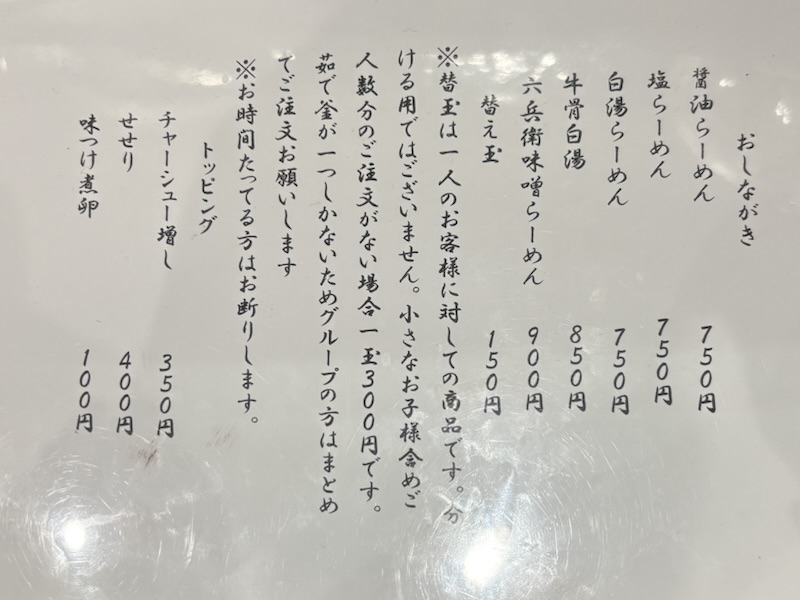 おしながき
醤油らーめん 750円
塩らーめん 750円
白湯らーめん 750円
牛骨白湯 850円
六兵衛味噌らーめん 900円
替え玉 150円
※替玉は一人のお客様に対しての商品です。分
ける用ではございません。小さなお子様含めご
人数分のご注文がない場合一玉300円です。
茹で釜が一つしかないためグループの方はまとめ
てご注文お願いします
※お時間たってる方はお断りします。
トッピング
チャーシュー増し 350円
せせり 400円
味つけ煮卵 100円